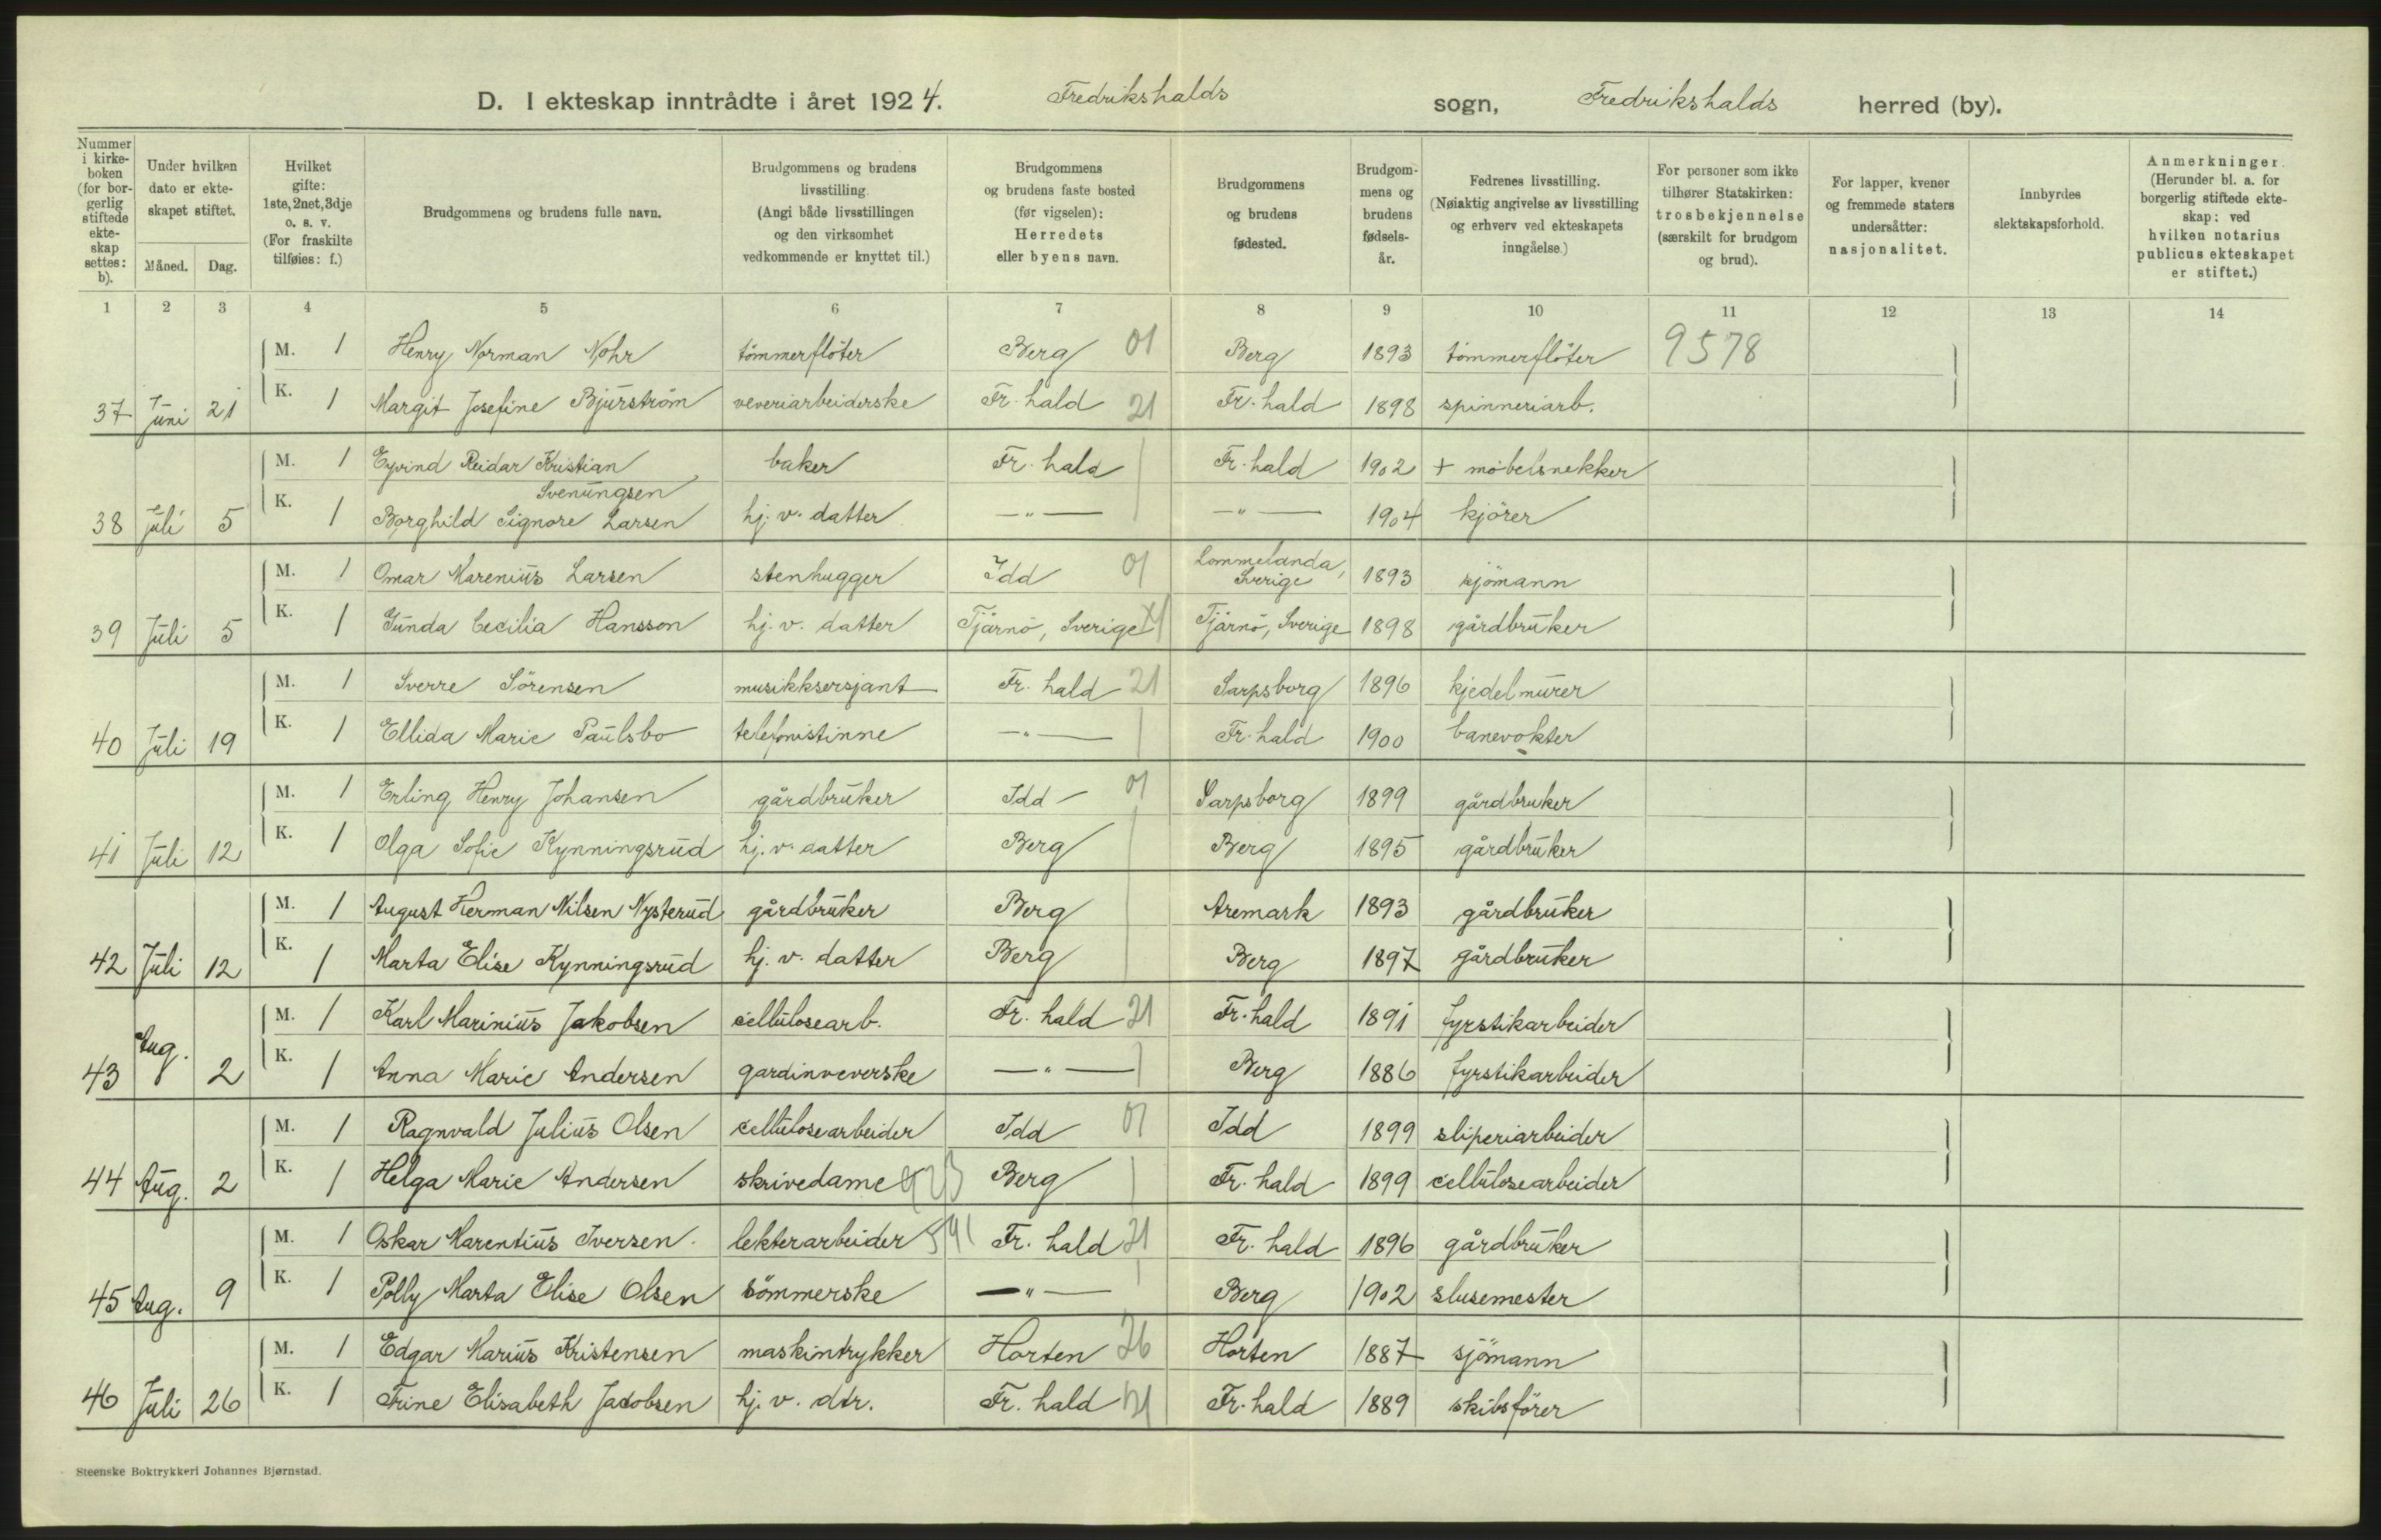 D. I ekteskap inntrådte i året 1924. Fredrikshalds sogn, Fredrikshalds herred (by).
Nummer i kirke-boken (for bor-gerlig stiftede ekte-skap settes: b).
Under hvilken dato er ekte-skapet stiftet.
Måned. Dag.
Hvilket gifte: 1ste, 2net, 3dje o. s. v. (For fraskilte tilføies: f.)
Brudgommens og brudens fulle navn.
Brudgommens og brudens livsstilling. (Angi både livsstillingen og den virksomhet vedkommende er knyttet til.)
Brudgommens og brudens faste bosted (før vigselen): Herredets eller byens navn.
Brudgommens og brudens fødested.
Brudgom-mens og brudens fødsels-år.
Fedrenes livsstilling. (Nøiaktig angivelse av livsstilling og erhverv ved ekteskapets inngåelse.)
For personer som ikke tilhører Statskirken: trosbekjennelse (særskilt for brudgom og brud).
For lapper, kvener og fremmede staters undersåtter: nasjonalitet.
Innbyrdes slektskapsforhold.
Anmerkninger. (Herunder bl. a. for borgerlig stiftede ekte-skap: ved hvilken notarius publicus ekteskapet er stiftet.)
1 2 3 4 5 6 7 8 9 10 11 12 13 14
M. 1 Henry Norman Nohr tömmerflöter Berg 01 Berg 1893 tömmerflöter 9578
37 Juni 21 K. 1 Margit Josefine Bjurström veveriarbeiderske Fr. hald 21 Fr. hald 1898 spinneriarb.
M. 1 Eyvind Reidar Kristian Svenungsen baker Fr. hald Fr. hald 1902 + möbelsnekker
38 Juli 5 K. 1 Borghild Signore Larsen hj. v. datter —"— —"— 1904 kjörer
M. 1 Omar Marenius Larsen stenhugger Idd 01 Lommelanda, Sverige 1893 sjömann
39 Juli 5 K. 1 Gunda Cecilia Hansson hj. v. datter Tjärnö, Sverige Tjärnö, Sverige 1898 gårdbruker
M. 1 Sverre Sörensen musikksersjant Fr. hald 21 Sarpsborg 1896 kjedelmurer
40 Juli 19 K. 1 Ellida Marie Paulsbo telefonistinne —"— Fr. hald 1900 banevokter
M. 1 Erling Henry Johansen gårdbruker Idd 01 Sarpsborg 1899 gårdbruker
41 Juli 12 K. 1 Olga Sofie Kynningsrud hj. v. datter Berg Berg 1895 gårdbruker
M. 1 August Herman Nilsen Nysterud gårdbruker Berg Aremark 1893 gårdbruker
42 Juli 12 K. 1 Marta Elise Kynningsrud hj. v. datter Berg Berg 1897 gårdbruker
M. 1 Karl Marinius Jakobsen cellulosearb. Fr. hald 21 Fr. hald 1891 fyrstikarbeider
43 Aug. 2 K. 1 Anna Marie Andersen gardinveverske —"— Berg 1886 fyrstikarbeider
M. 1 Ragnvald Julius Olsen cellulosearbeider Idd 01 Idd 1899 sliperiarbeider
44 Aug. 2 K. 1 Helga Marie Andersen skrivedame Berg Fr. hald 1899 cellulosearbeider
M. 1 Oskar Marentius Iversen lekterarbeider Fr. hald 21 Fr. hald 1896 gårdbruker
45 Aug. 9 K. 1 Polly Marta Elise Olsen sömmerske —"— Berg 1902 slusemester
M. 1 Edgar Marius Kristensen maskintrykker Horten 26 Horten 1887 sjömann
46 Juli 26 K. 1 Trine Elisabeth Jacobsen hj. v. dtr. Fr. hald 21 Fr. hald 1889 skibsförer
Steenske Boktrykkeri Johannes Bjørnstad.